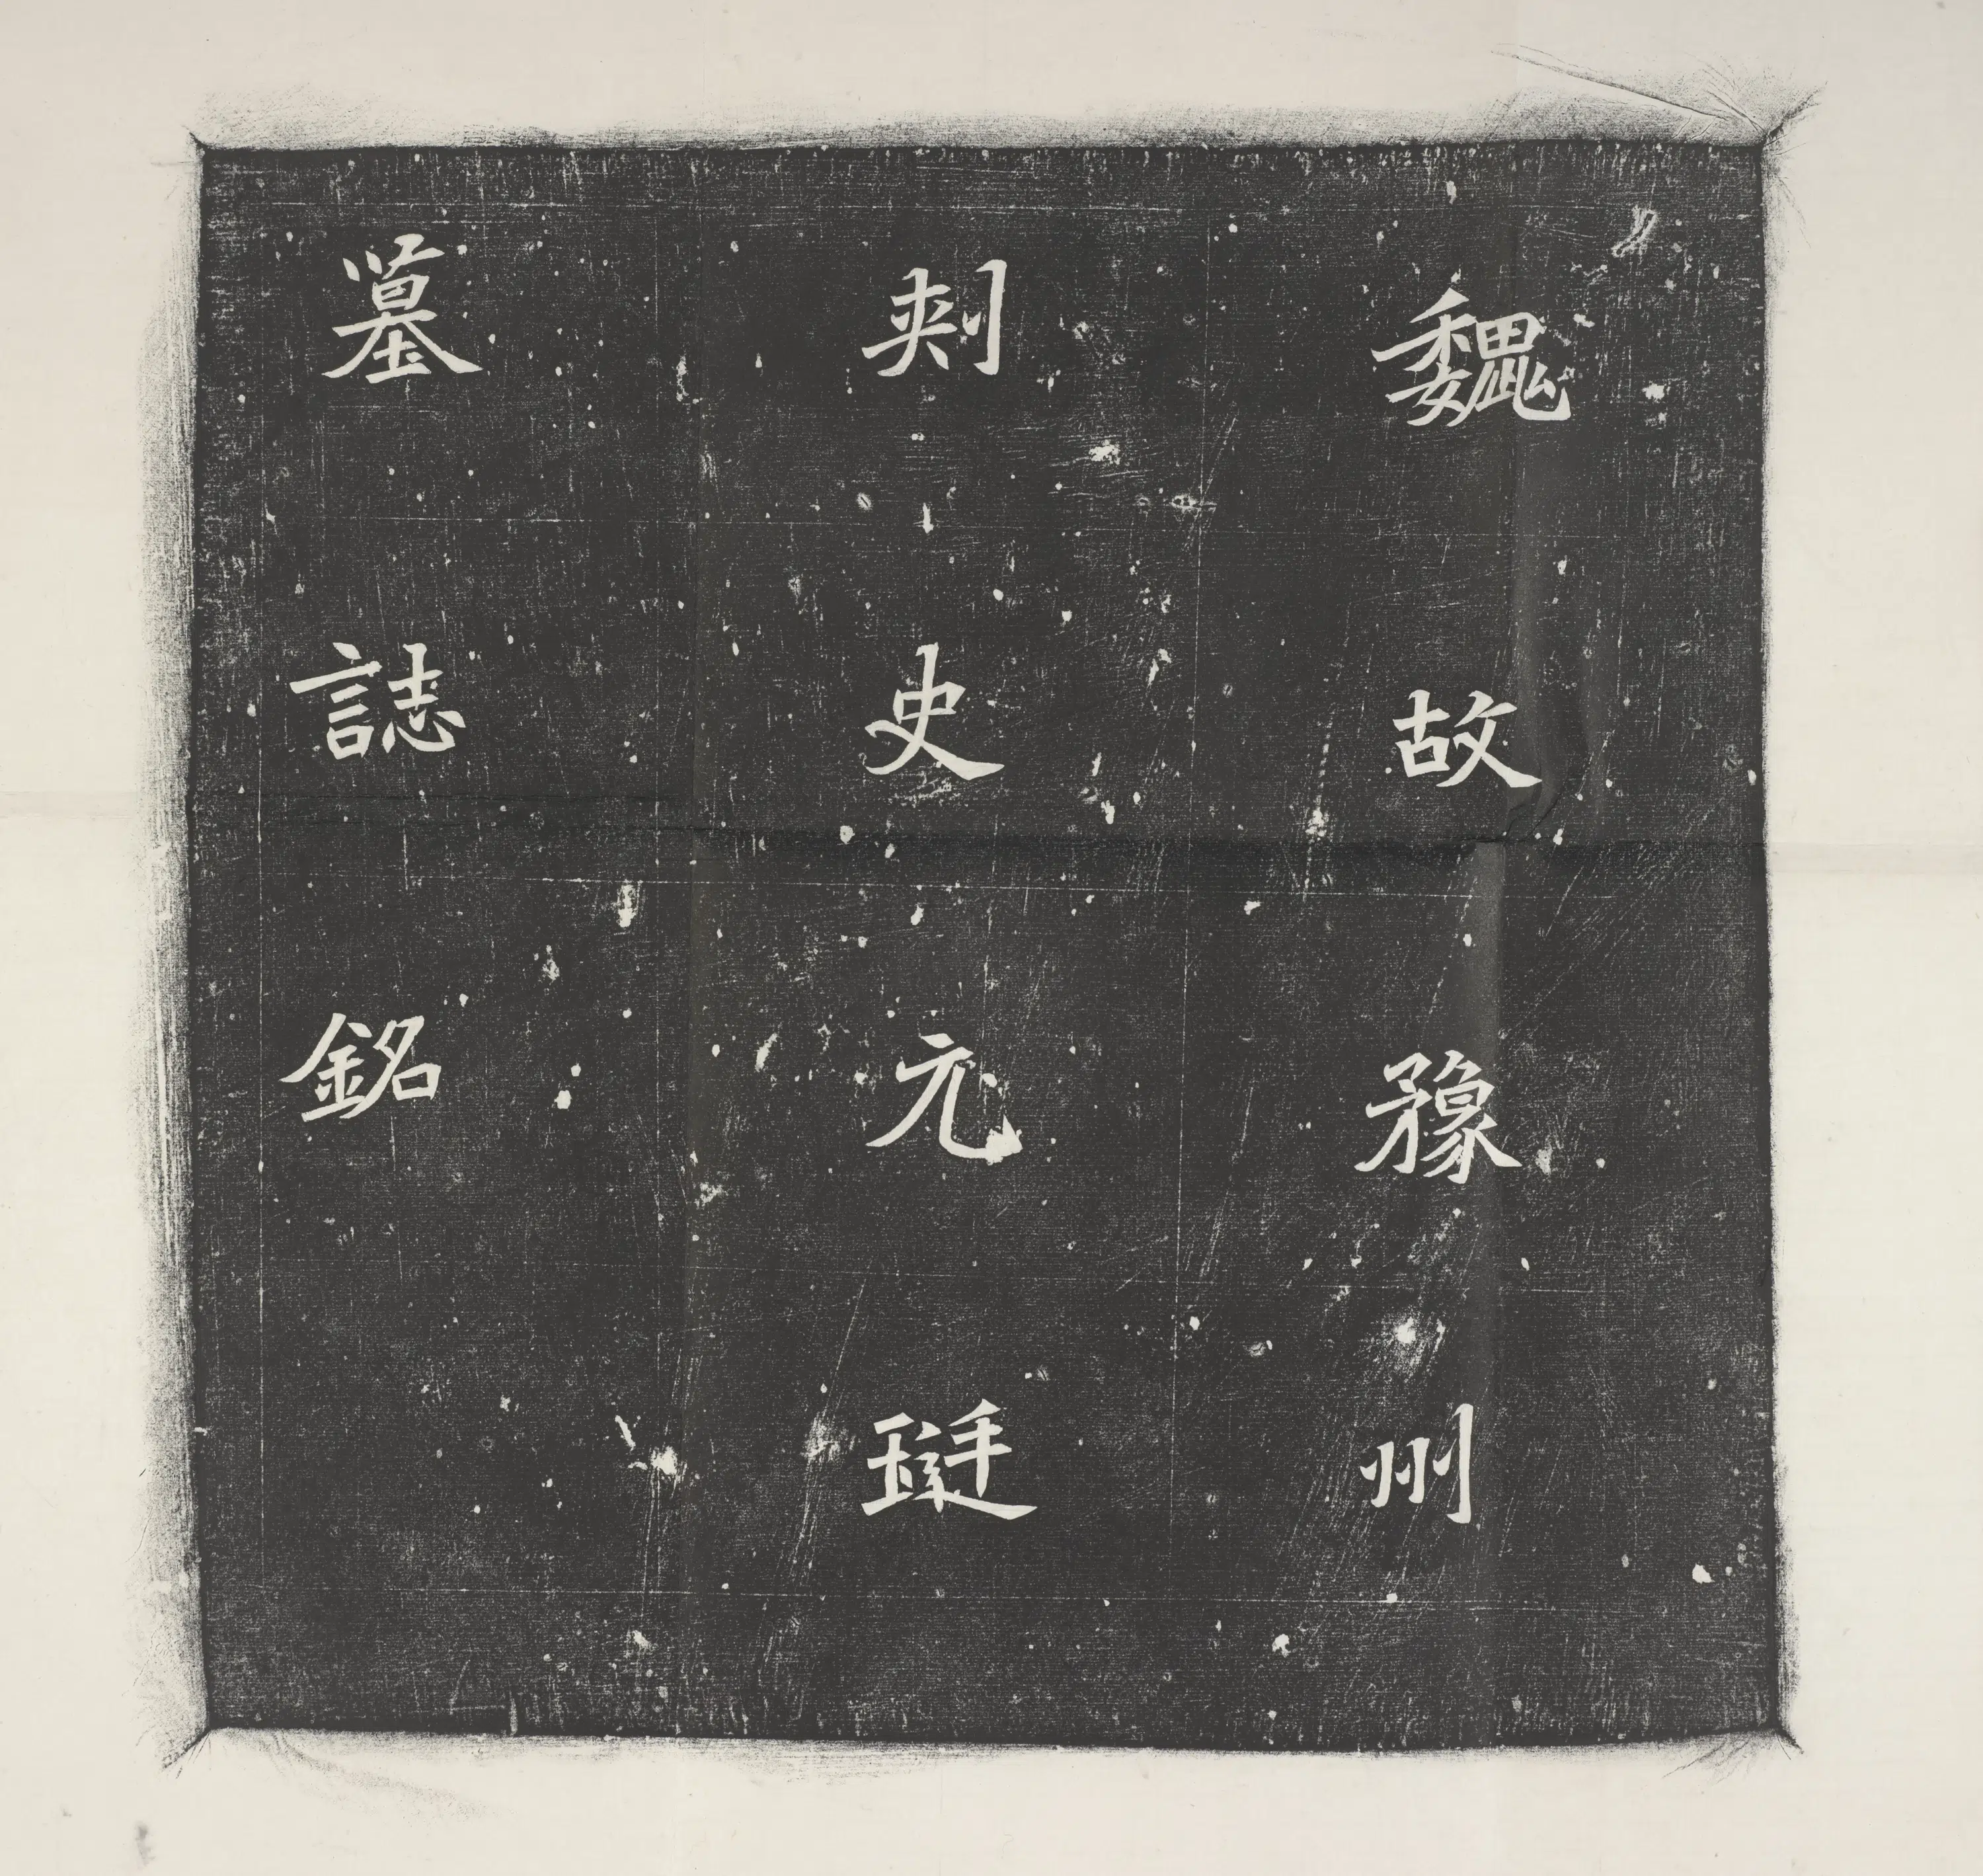 魏故豫州
刾史元珽
墓誌銘